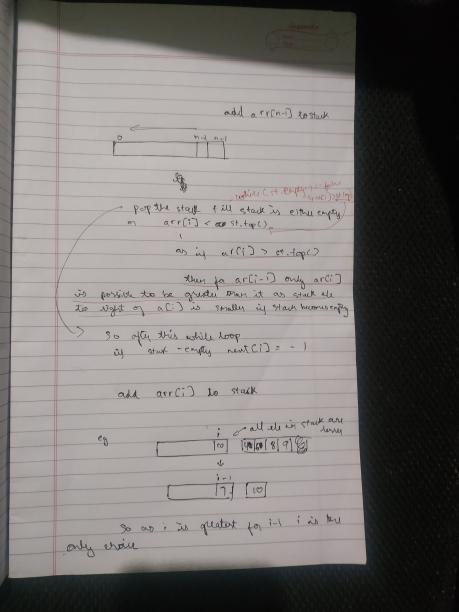 add arr[n-1] to stack
0 n-2 n-1
while (st.empty
pop the stack till stack is either empty
or arr[i] < st.top()
as if ar[i] > st.top()
then for ar[i-1] only ar[i]
is possible to be greater than it as stack ele
to right of a[i] is smaller if stack becomes empty
So after this while loop
if stack-empty next[i] = -1
add arr[i] to stack
eg i all ele in stack are
lesser
10 8 9
i-1
7 10
So as i is greatest for i-1 i is the
only choice